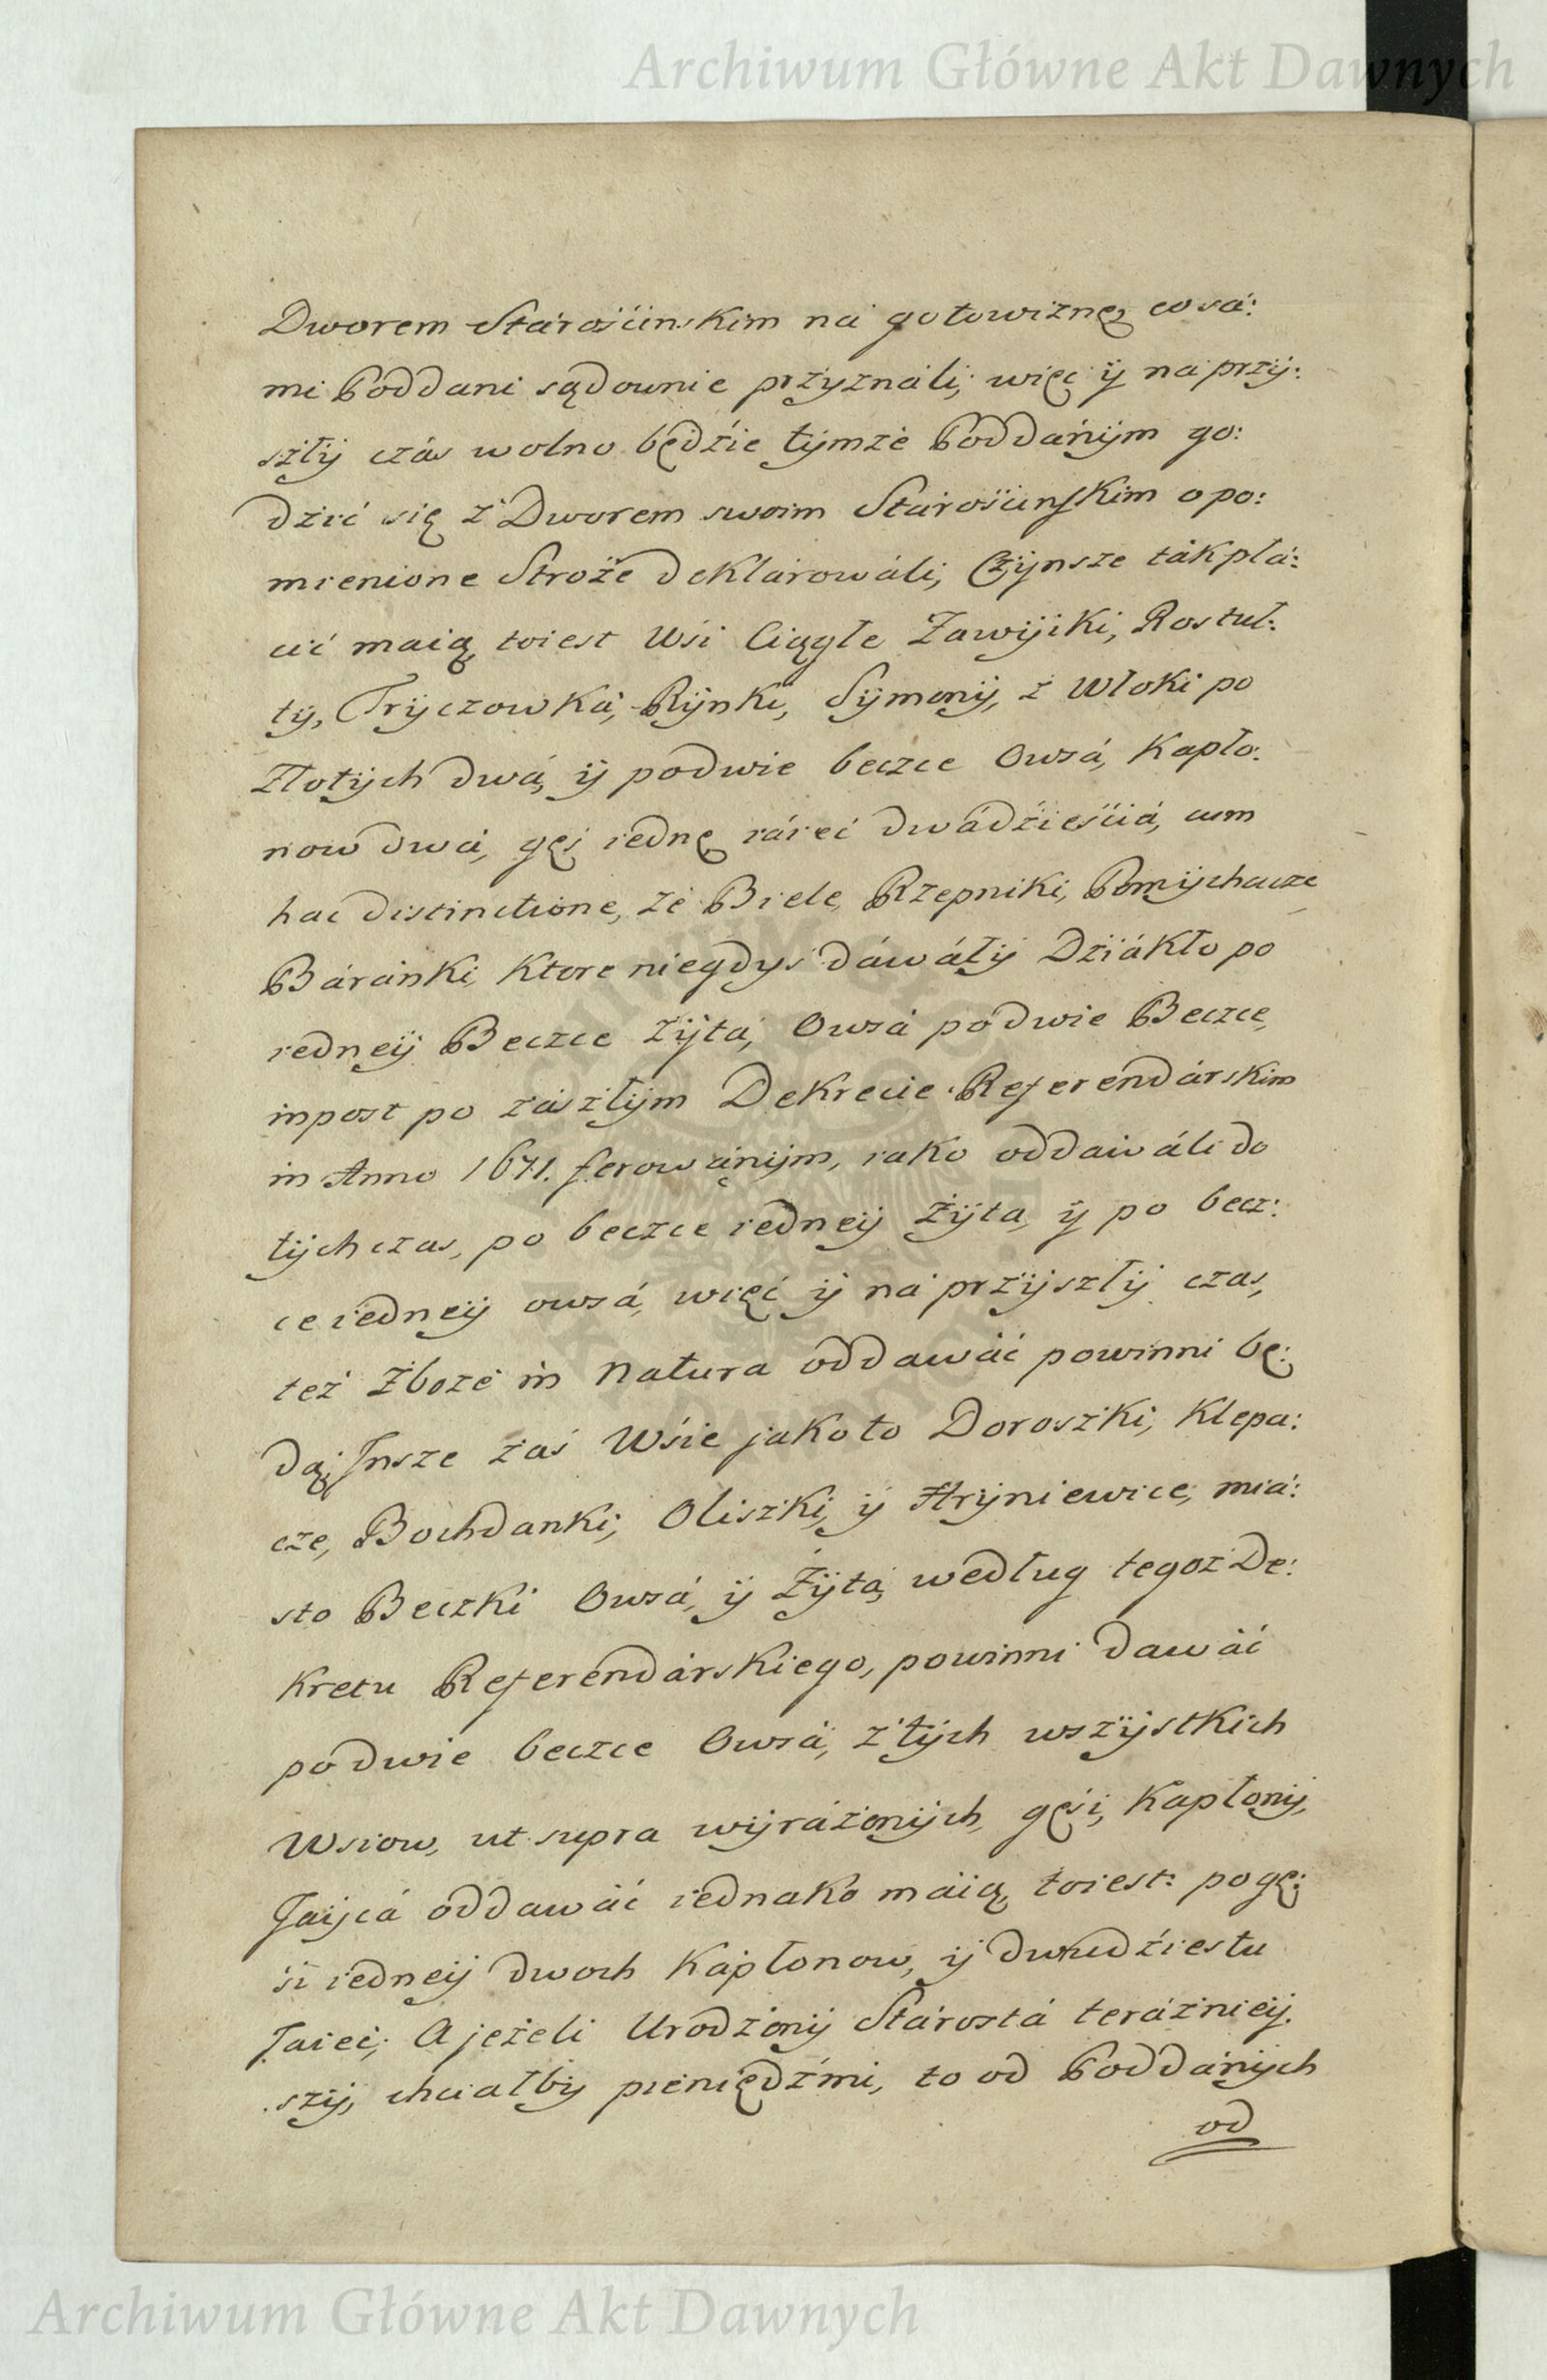 Archiwum Główne Akt Dawnych
Dworem Stárośćinskim ná gotowiznę, co sá:
mi Poddani sądownie przyználi; więc ÿ ná przÿ:
szłÿ czás wolno będźie tÿmże Poddánÿm go:
dzić się z Dworem swoim Stárośćinskim o po:
mienione Stroże deklárowáli, Czÿnsze ták płá:
cić maią, toiest Wśi Ciągłe Zawÿiki, Rostuł:
tÿ, Trÿczowká, Rÿnki, Sÿmonÿ, z Włoki po
Złotÿch dwá, ÿ podwie beczce Owsá, Kapło:
now dwá, gęś iednę iáiec dwádźieśćiá, cum
hac distinctione, że Biele, Rzepniki, Pomÿchacze
Báránki, Ktore niegdyś dáwáłÿ Dźiákło po
iedneÿ Beczce żÿtá, Owsá podwie Beczce,
inpost po zászłÿm Dekrecie Referendárskim
in Anno 1671. ferowánÿm, iáko oddawáli do
tÿchczas, po beczce iedneÿ żÿta, ÿ po becz:
ce iedneÿ owsá, więć ÿ ná przÿszłÿ czas,
też Zboże in Natura oddawáć powinni bę:
dą; Insze zaś Wśie jako to Doroszki, Klepa:
cze, Bochdanki, Oliszki, ÿ Hrÿniewice, miá:
sto Beczki Owsá, ÿ Żÿtá, według tegoż De:
kretu Referendárskiego, powinni dawáć
podwie beczce Owsá, z tÿch wszÿstkich
Wsiow, ut supra wÿráżonÿch, gęśi, Kapłonÿ,
Jaÿcá oddawáć iednako máią, toiest: po gę:
śi iedneÿ dwoch Kápłonow, ÿ dwudźiestu
Jaiec; A jeżeli Urodzonÿ Stárostá teráźnieÿ:
szÿ, chciałbÿ pieniędźmi, to od Poddánÿch
od
Archiwum Główne Akt Dawnych